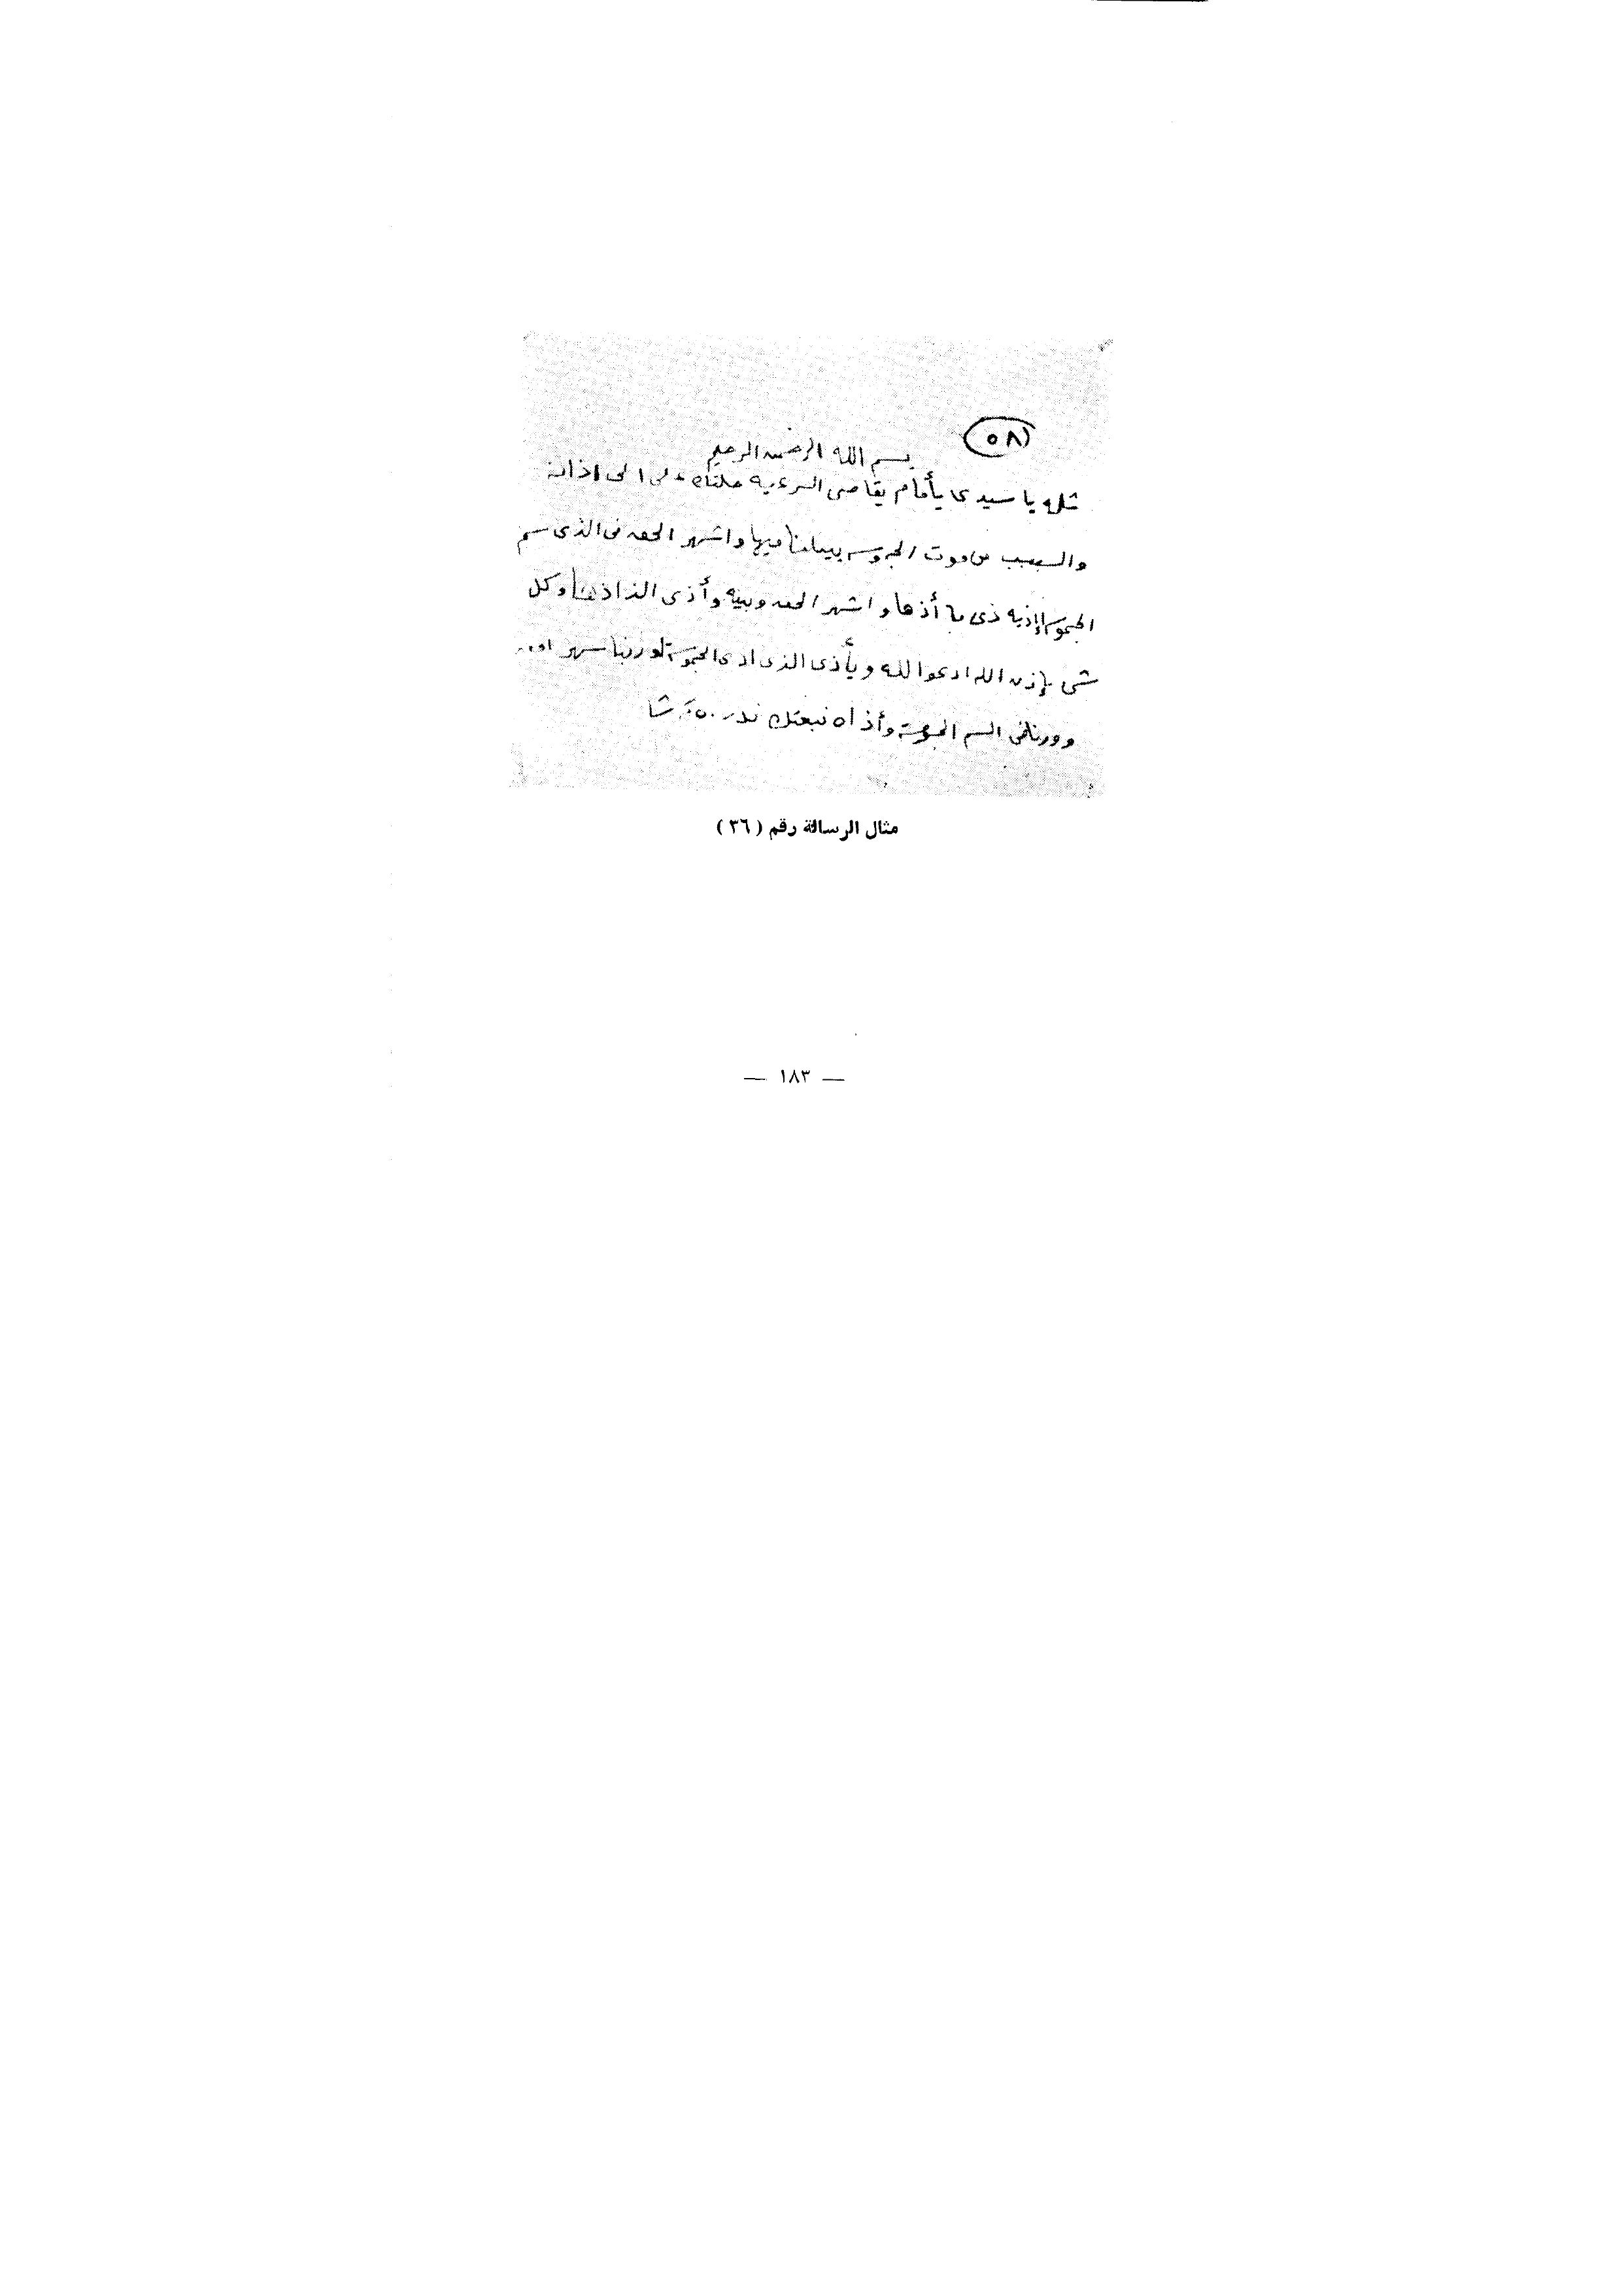 ٥٨
بسم الله الرحمن الرحيم
يا سيدى يأمام يقاضى الشرعيه حلتك على الى اذانه
والسبب من موت الجموسه بيبلنا فيها واشهر الحق فى الذى سم
الجموسه إذيه ذى ما أذها واشهر الحق وبينه وأذى الذ اذها وكل
شى بإذن الله ادعوا لله ويأذى الذى اذى الجموسة لو ربنا
وورنا فى السم الجموسة وأذاه نبعتلك ندر ٥٠ قرشا
مثال الرسالة رقم (٣٦)
— ١٨٣ —